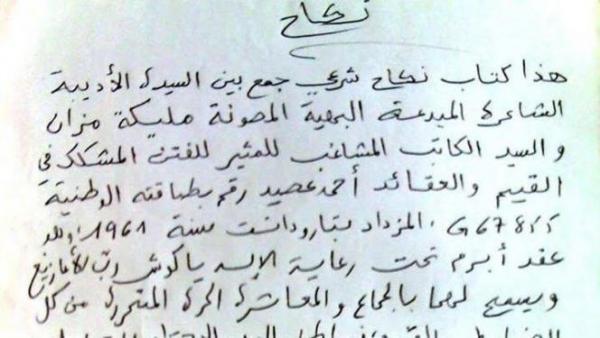 نكاح
هذا كتاب نكاح شرعي جمع بين السيدة الأديبة
الشاعرة المبدعة البهية المصونة مليكة مزان
والسيد الكاتب المشاغب المثير للفتن المشكك في
القيم والعقائد أحمد عصيد رقم بطاقته الوطنية
المزداد بتارودانت سنة 1961، وقد
عقد أبرم تحت رعاية الإله ياكوش رب الأمازيغ
ويسمح لهما بالجماع والمعاشرة الحرة المتحررة من كل